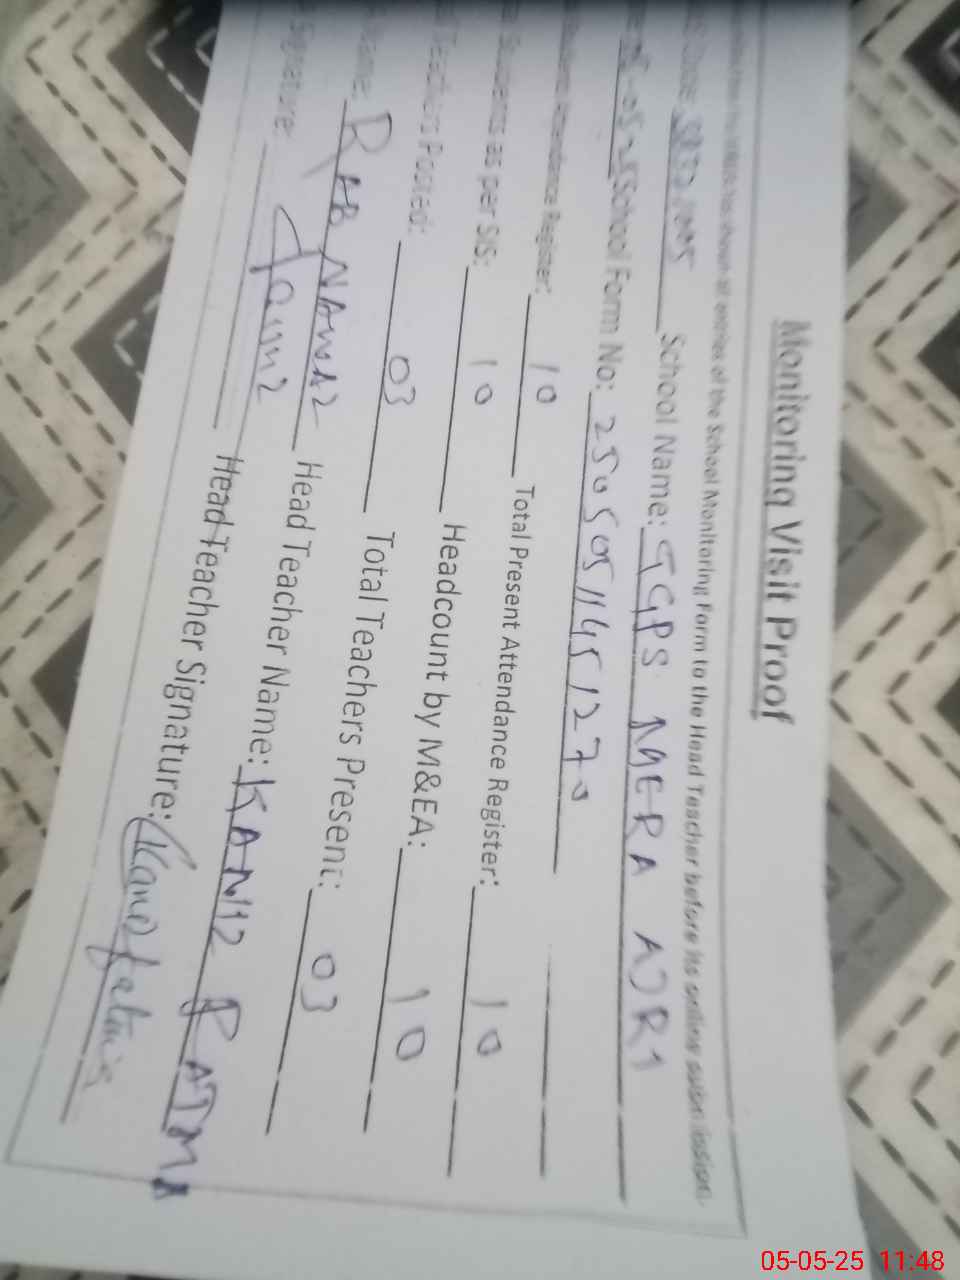 Monitoring Visit Proof
of the School Monitoring Form to the Head Teacher before its online submission.
School Name: GGPS MERA
School Form No: 250505114451270
Attendance Register: 10 Total Present Attendance Register: 10
Students as per SIS: 10 Headcount by M&EA: 10
Teachers Posted: 03 Total Teachers Present: 03
Name: RAB NAWAZ Head Teacher Name: KANIZ FATMA
Signature: Head Teacher Signature: Kaniz Fatima
05-05-25 11:48